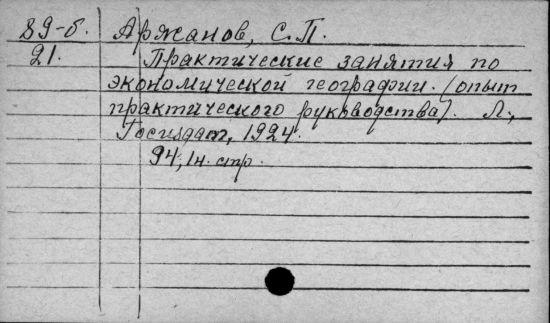 89-б. Аржанов, С.П.
21. Практические занятия по
экономической географии. (опыт
практического руководства). Л.,
Госиздат, 1924.
94, 1н. стр.